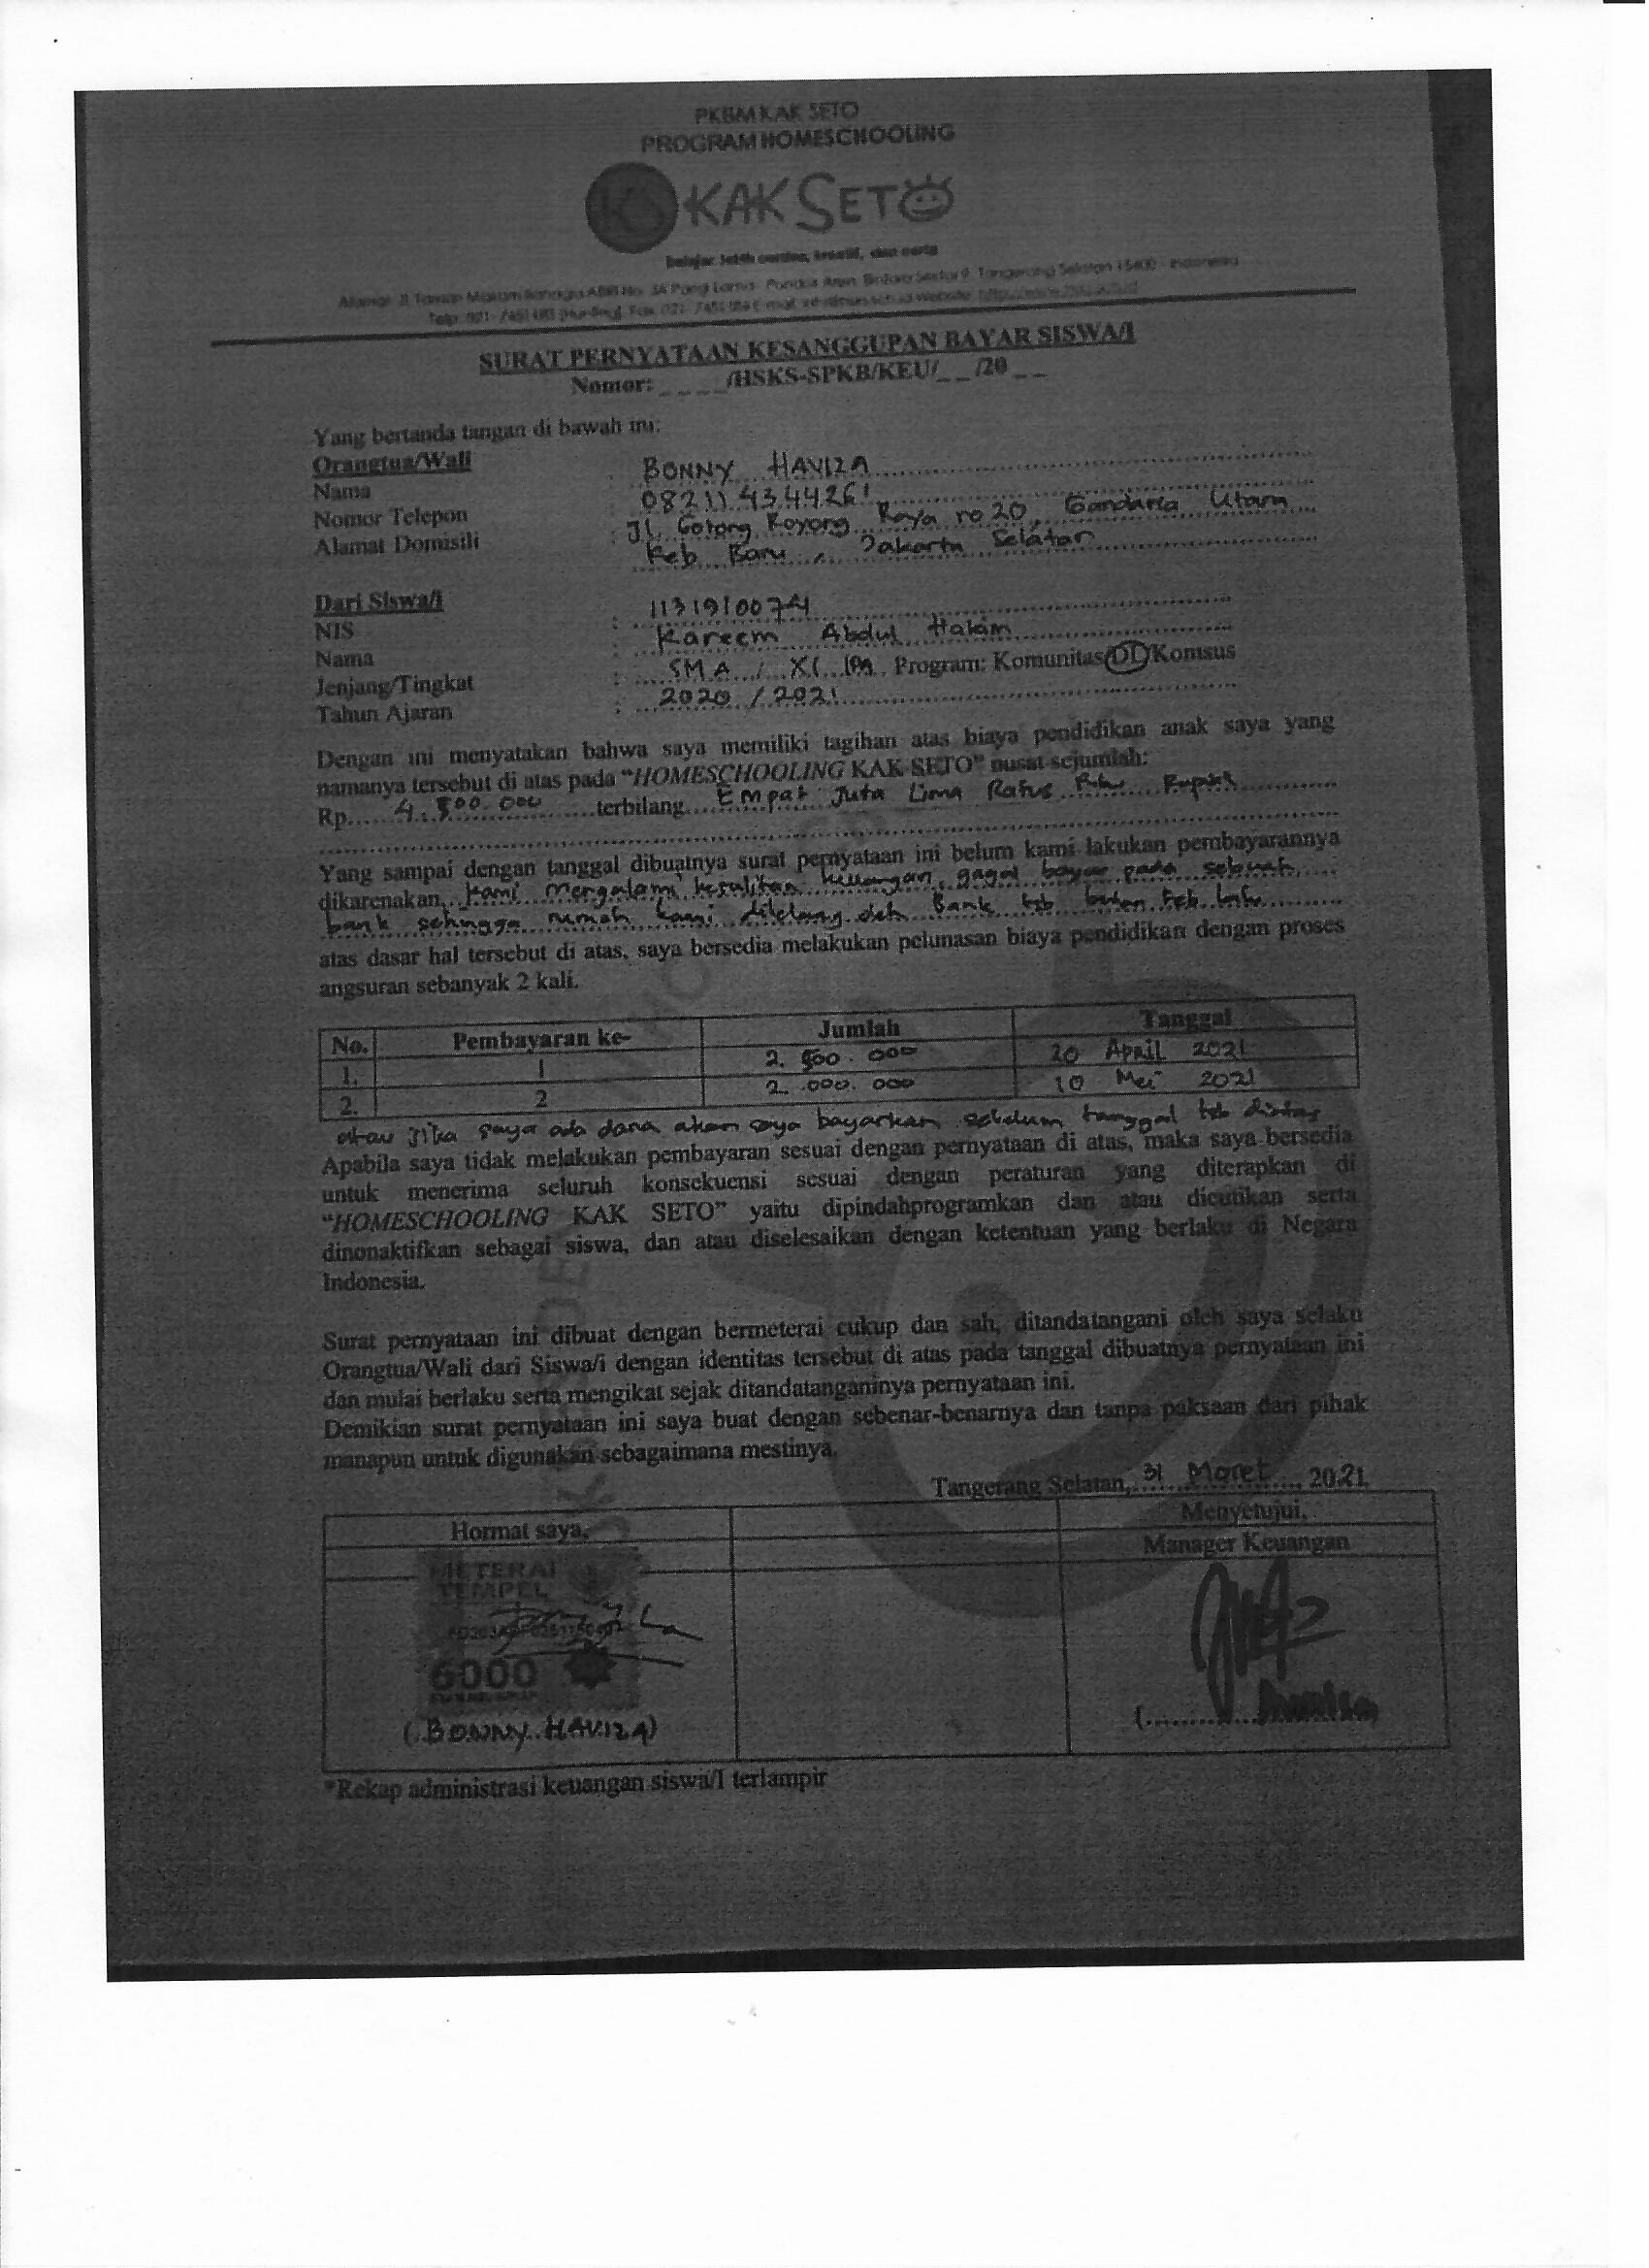 PKBM KAK SETO
PROGRAM HOMESCHOOLING
KS KAK SETO
belajar lebih cerdas, kreatif, dan ceria
SURAT PERNYATAAN KESANGGUPAN BAYAR SISWA/I
Nomor: _ _ _ _/HSKS-SPKB/KEU/_ _ /20 _ _
Yang bertanda tangan di bawah ini:
Orangtua/Wali
Nama : BONNY HAVIZA
Nomor Telepon : 082114344261
Alamat Domisili : Jl. Gotong Royong Raya no 20, Gandaria Utara
Keb Baru, Jakarta Selatan
Dari Siswa/i
NIS : 1131910074
Nama : Kareem Abdul Hakim
Jenjang/Tingkat : SMA / XI IPA Program: Komunitas/DL/Komsus
Tahun Ajaran : 2020 / 2021
Dengan ini menyatakan bahwa saya memiliki tagihan atas biaya pendidikan anak saya yang
namanya tersebut di atas pada "HOMESCHOOLING KAK SETO" pusat sejumlah:
Rp. 4.500.000 terbilang Empat Juta Lima Ratus Ribu Rupiah
Yang sampai dengan tanggal dibuatnya surat pernyataan ini belum kami lakukan pembayarannya
dikarenakan, kami mengalami kesulitan keuangan, gagal bayar pada sebuah
bank sehingga rumah kami dilelang oleh Bank tsb bulan Feb lalu
atas dasar hal tersebut di atas, saya bersedia melakukan pelunasan biaya pendidikan dengan proses
angsuran sebanyak 2 kali.
No. Pembayaran ke- Jumlah Tanggal
1. 1 2.500.000 20 April 2021
2. 2 2.000.000 10 Mei 2021
atau jika saya ada dana akan saya bayarkan sebelum tanggal tsb diatas
Apabila saya tidak melakukan pembayaran sesuai dengan pernyataan di atas, maka saya bersedia
untuk menerima seluruh konsekuensi sesuai dengan peraturan yang diterapkan di
"HOMESCHOOLING KAK SETO" yaitu dipindahprogramkan dan atau dicutikan serta
dinonaktifkan sebagai siswa, dan atau diselesaikan dengan ketentuan yang berlaku di Negara
Indonesia.
Surat pernyataan ini dibuat dengan bermeterai cukup dan sah, ditandatangani oleh saya selaku
Orangtua/Wali dari Siswa/i dengan identitas tersebut di atas pada tanggal dibuatnya pernyataan ini
dan mulai berlaku serta mengikat sejak ditandatanganinya pernyataan ini.
Demikian surat pernyataan ini saya buat dengan sebenar-benarnya dan tanpa paksaan dari pihak
manapun untuk digunakan sebagaimana mestinya.
Tangerang Selatan, 31 Maret, 2021
Hormat saya, Menyetujui,
Manager Keuangan
METERAI
TEMPEL
6000
(BONNY HAVIZA)
*Rekap administrasi keuangan siswa/I terlampir